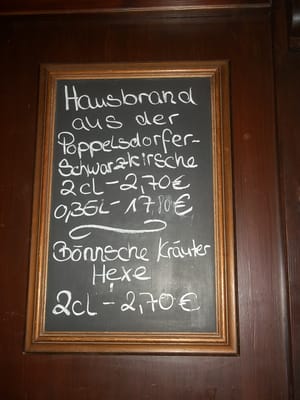 Hausbrand
aus der
Poppelsdorfer-
Schwarzkirsche
2cl - 2,70€
0,35l - 17,80€
Bönnsche Kräuter
Hexe
2cl - 2,70€